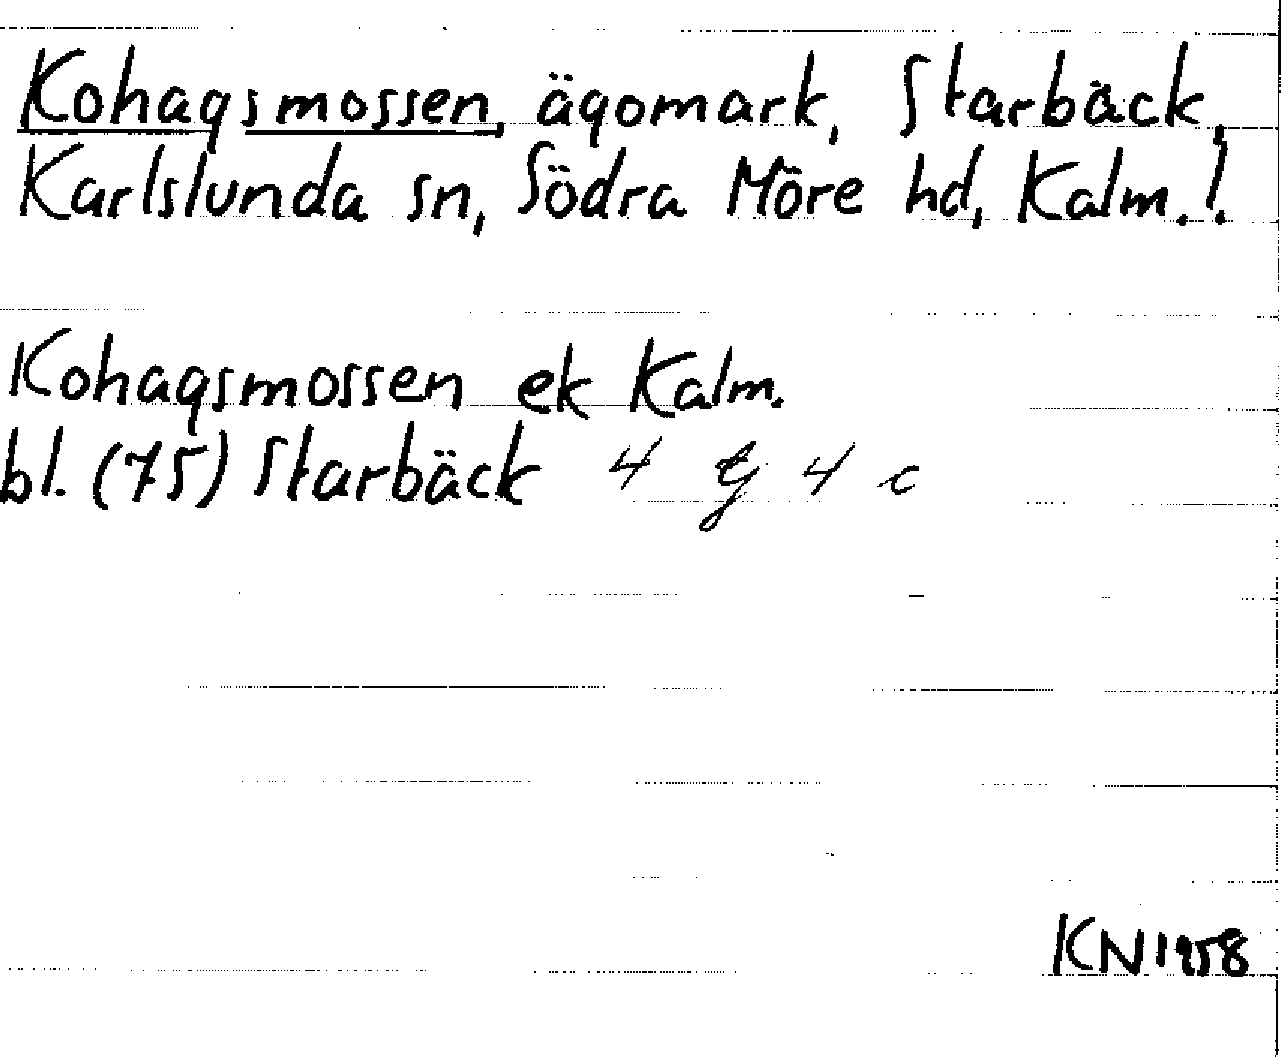 Kohagsmossen, ägomark, Starbäck,
Karlslunda sn, Södra Möre hd, Kalm.l.
Kohagsmossen ek Kalm.
bl. (75) Starbäck 4 G 4 c
KN 1958